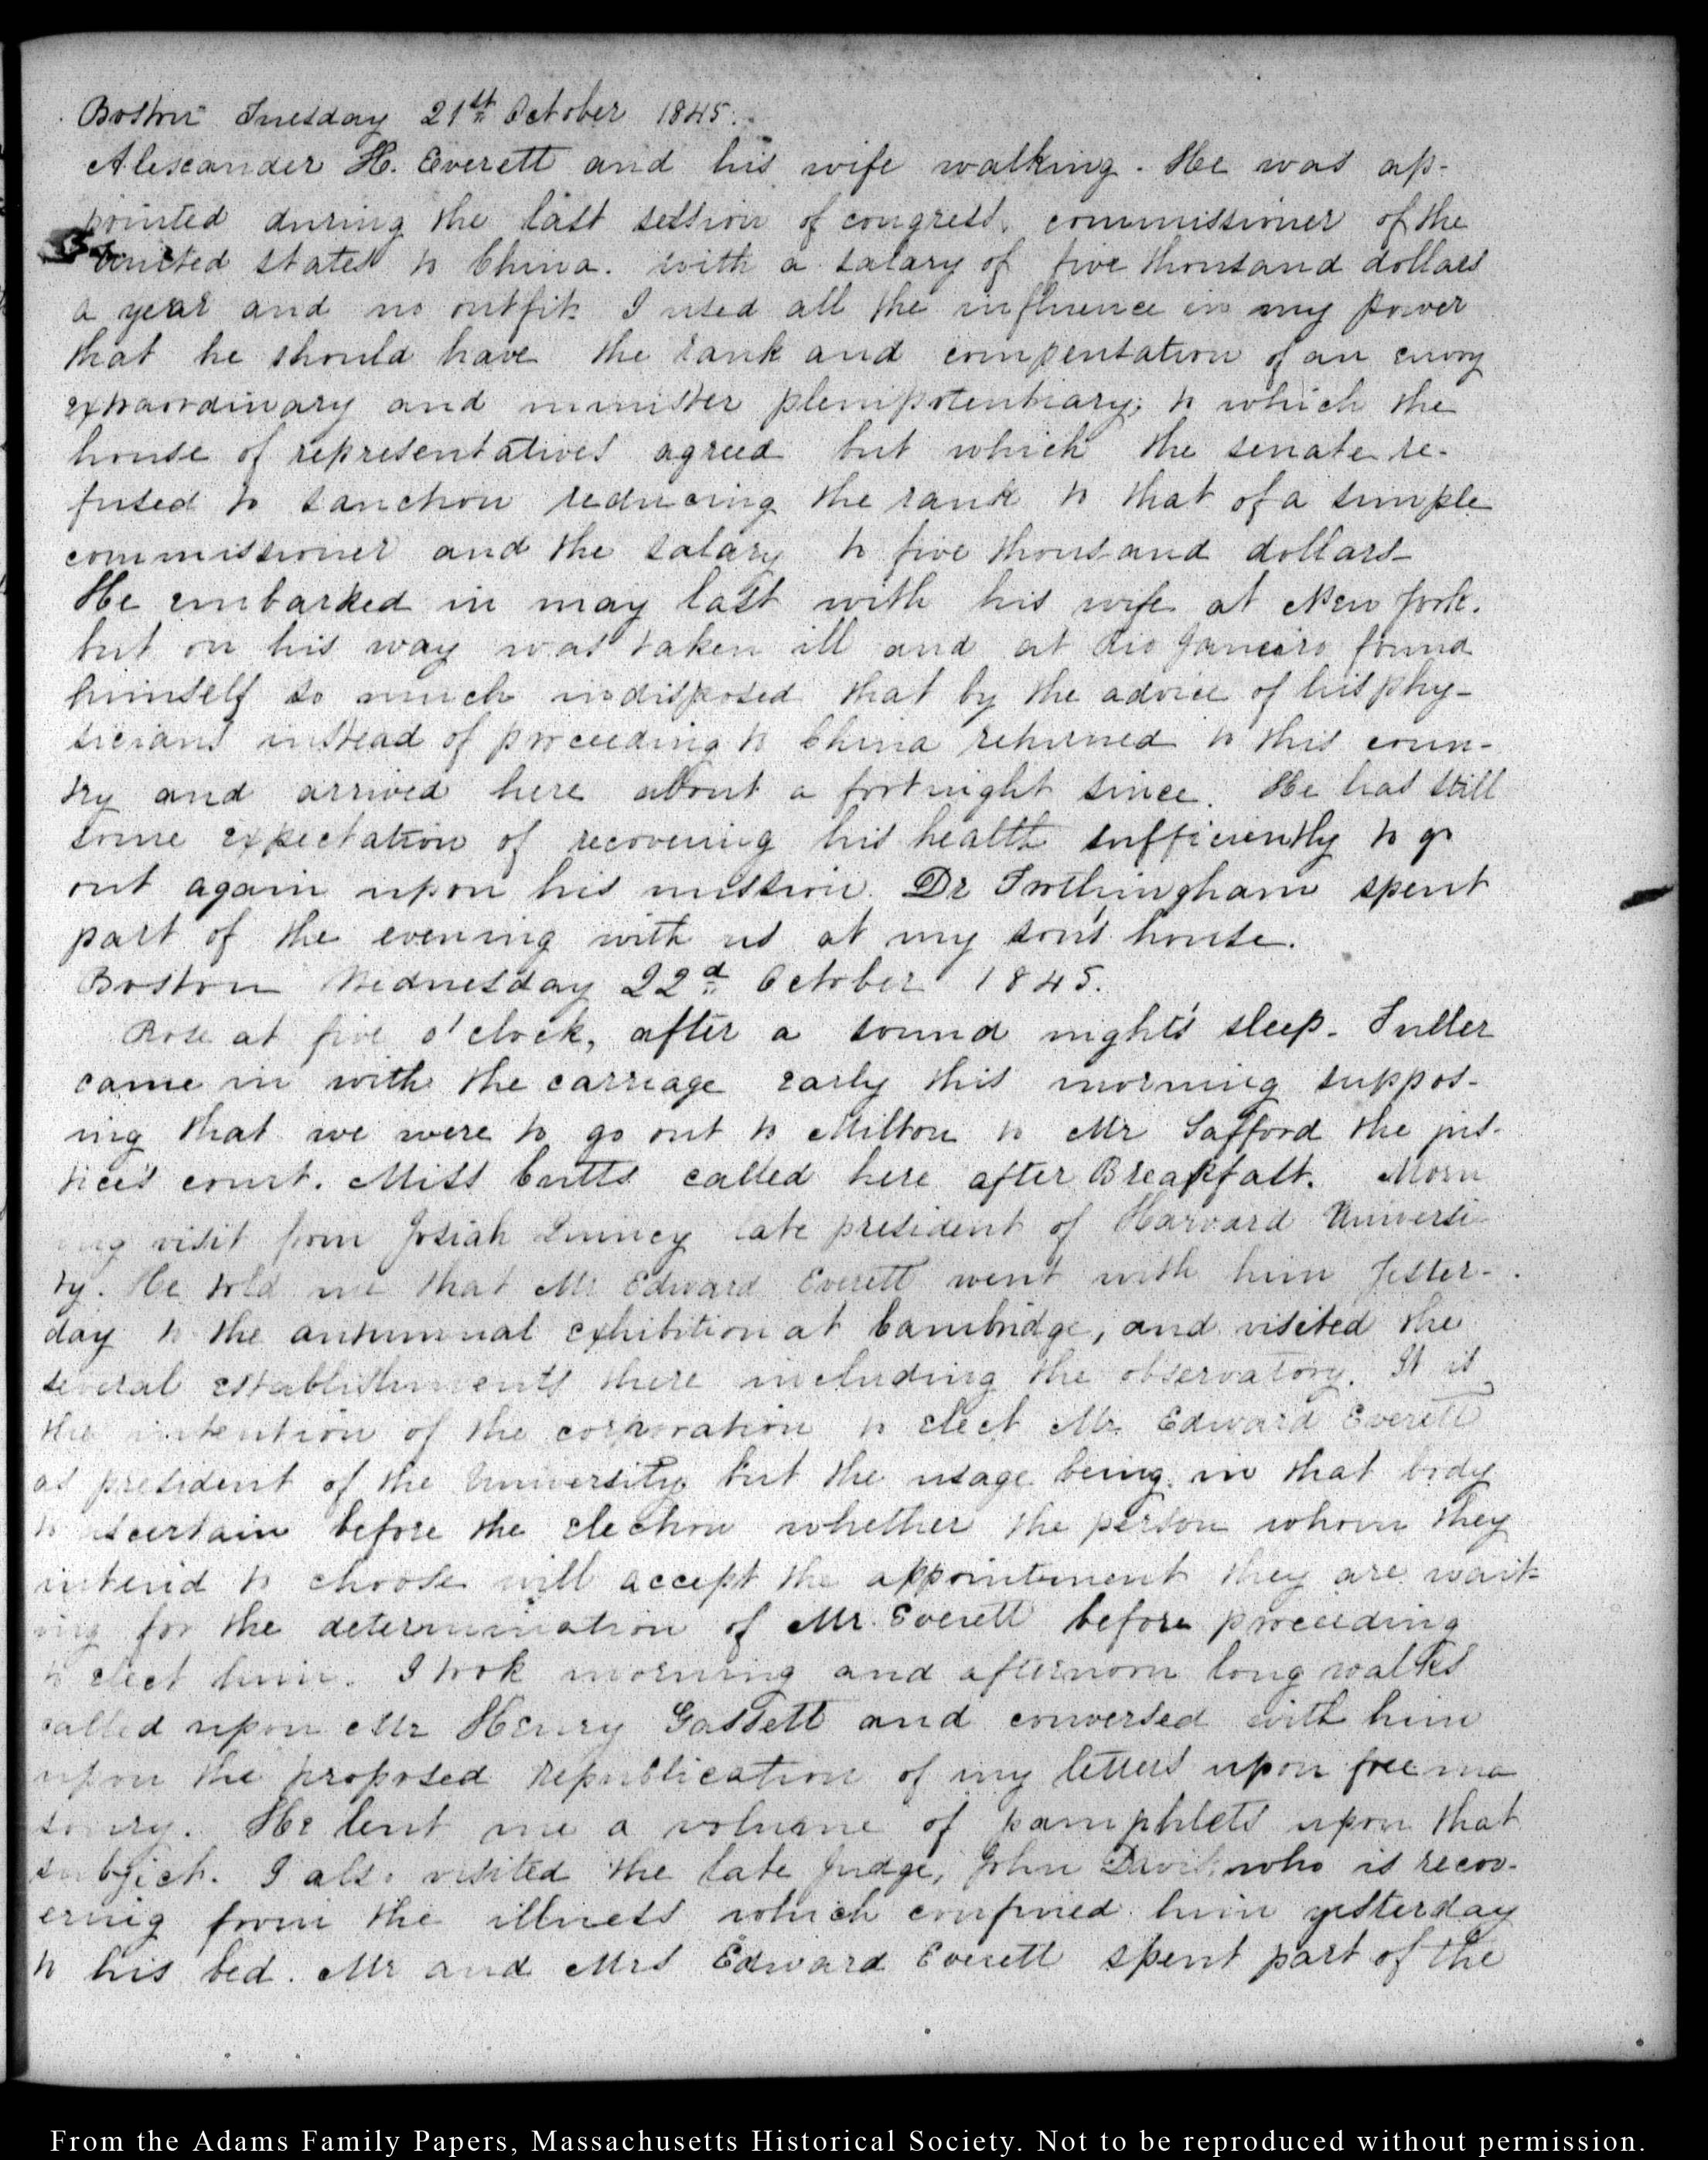 Boston Tuesday 21st October 1845.
Alexander H. Everett and his wife walking. He was ap-
pointed during the last session of congress, commissioner of the
united states to China. with a salary of five thousand dollars
a year and no outfit I used all the influence in my power
that he should have the rank and compensation of an envoy
extraordinary and minister plenipotentiary; to which the
house of representatives agreed but which the senate re-
fused to sanction reducing the rank to that of a simple
commissioner and the salary to five thousand dollars
He embarked in may last with his wife at New York.
but on his way was taken ill and at Rio Janeiro found
himself so much indisposed that by the advice of his phy-
sicians instead of proceeding to China returned to this coun-
try and arrived here about a fortnight since. He has still
some expectation of recovering his health sufficiently to go
out again upon his mission. Dr Frothingham spent
part of the evening with us at my son's house.
Boston Wednesday 22d October 1845.
Rose at five o'clock, after a sound night's sleep. Fuller
came in with the carriage early this morning suppos-
ing that we were to go out to Milton to Mr Safford the jus-
tice's court. Miss Cutts called here after Breakfast. Morn
ing visit from Josiah Quincy late president of Harvard Universi
ty. He told me that Mr Edward Everett went with him Yester-
day to the autumnal exhibition at Cambridge, and visited the
several establishments there including the observatory. It is
the intention of the corporation to elect Mr. Edward Everett
as president of the University but the usage being in that body
to ascertain before the election whether the person whom they
intend to choose will accept the appointment they are wait-
ing for the determination of Mr. Everett before proceeding
to elect him. I took morning and afternoon long walks
called upon Mr Henry Gassett and conversed with him
upon the proposed republication of my letters upon free ma
sonry. He lent me a volume of pamphlets upon that
subject. I also visited the late Judge, John Davis, who is recov-
ering from the illness which confined him yesterday
to his bed. Mr and Mrs Edward Everett spent part of the
From the Adams Family Papers, Massachusetts Historical Society. Not to be reproduced without permission.